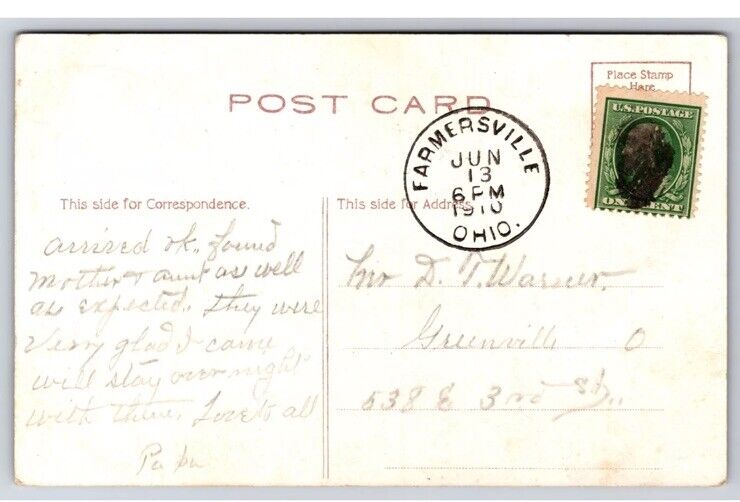 POST CARD
Place Stamp
Here
U.S. POSTAGE
ONE CENT
FARMERSVILLE
JUN
13
6 PM
1910
OHIO.
This side for Correspondence.
This side for Address
arrived ok. found
Mother & aunt as well
as expected. They were
Very glad I came
will stay over night
with them. Love to all
Papa
D. T. Warner.
Greenville O
538 E 3rd St.